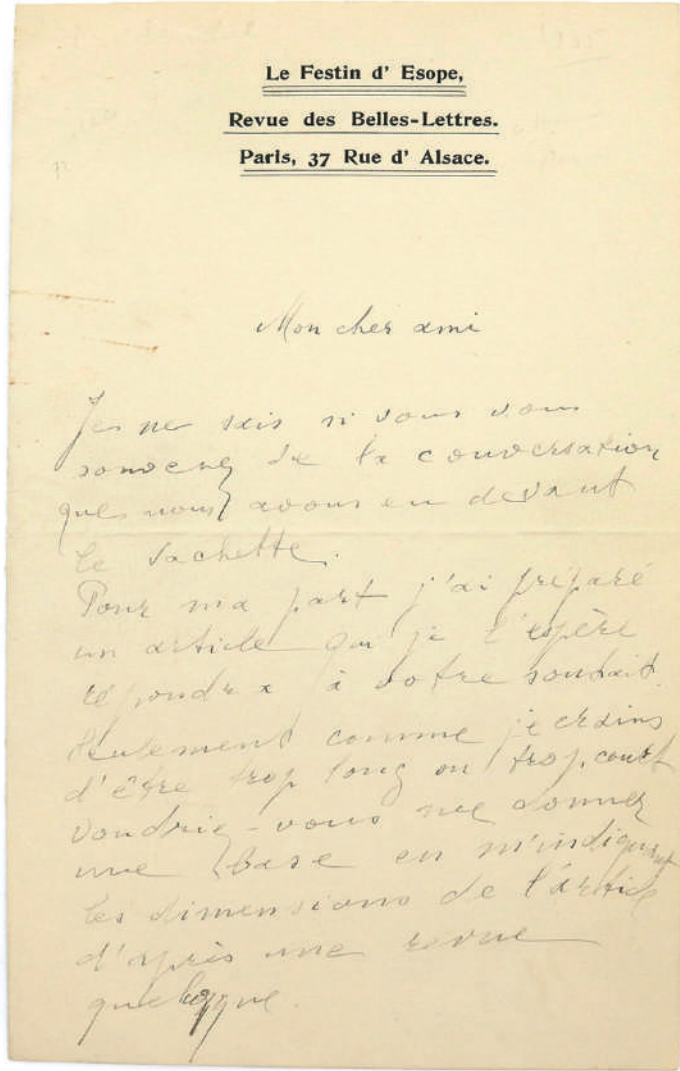 Le Festin d' Esope,
Revue des Belles-Lettres.
Paris, 37 Rue d' Alsace.
Mon cher ami
Je ne sais si vous vous
souvenez de la conversation
que nous avons eu devant
le Vachette.
Pour ma part j'ai préparé
un article qui je l'espère
répondra à votre souhait.
Seulement comme je crains
d'être trop long ou trop court
voudriez-vous me donner
une base en m'indiquant
les dimensions de l'article
d'après une revue
quelconque.